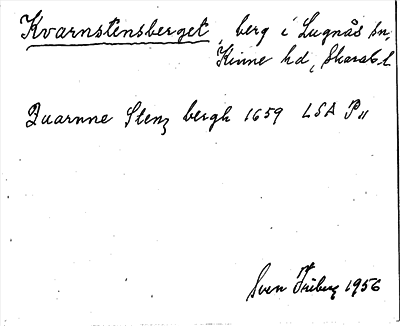 Kvarnstensberget, berg i Lugnås sn,
Kinne hd, Skarab. l.
Quarnne Stenz bergh 1659 LSA P11
Sven Friberg 1956